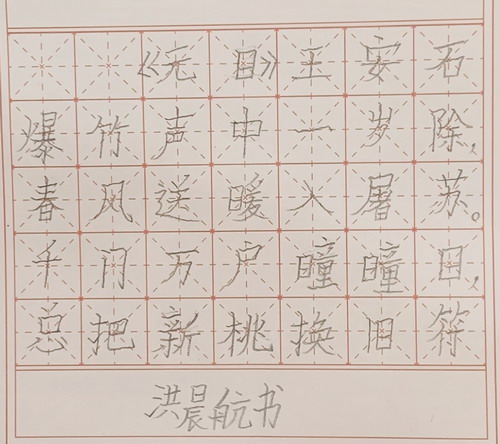 《元日》王安石
爆竹声中一岁除，
春风送暖入屠苏。
千门万户曈曈日，
总把新桃换旧符
洪晨航书